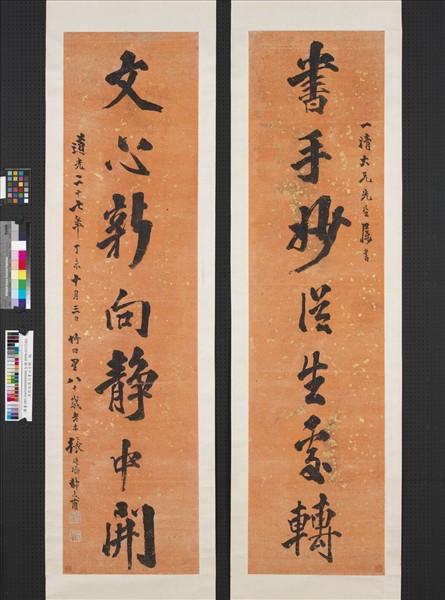 一清大兄先生屬書
書手妙從生處轉
文心新向靜中開
道光二十七年丁未十月三日竹田里八十歲老人張廷濟叔未甫